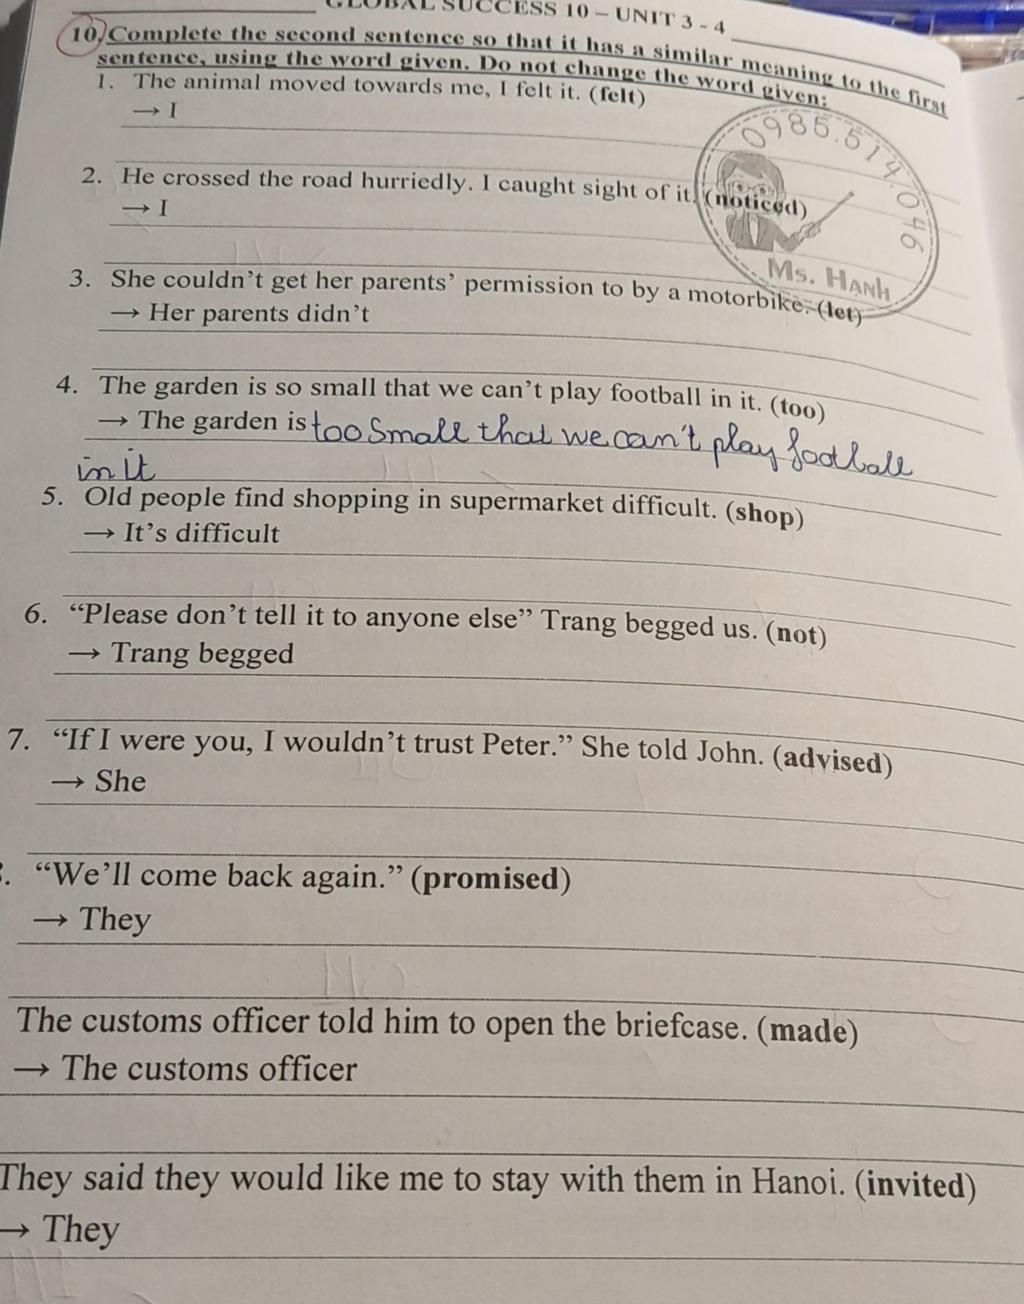 GLOBAL SUCCESS 10 – UNIT 3 - 4
10. Complete the second sentence so that it has a similar meaning to the first
sentence, using the word given. Do not change the word given:
1. The animal moved towards me, I felt it. (felt)
→ I
0985.514.046
2. He crossed the road hurriedly. I caught sight of it. (noticed)
→ I
Ms. HẠNH
3. She couldn't get her parents' permission to by a motorbike. (let)
→ Her parents didn't
4. The garden is so small that we can't play football in it. (too)
→ The garden is too small that we can't play football
in it
5. Old people find shopping in supermarket difficult. (shop)
→ It's difficult
6. “Please don't tell it to anyone else” Trang begged us. (not)
→ Trang begged
7. “If I were you, I wouldn't trust Peter.” She told John. (advised)
→ She
. “We'll come back again.” (promised)
→ They
The customs officer told him to open the briefcase. (made)
→ The customs officer
They said they would like me to stay with them in Hanoi. (invited)
→ They